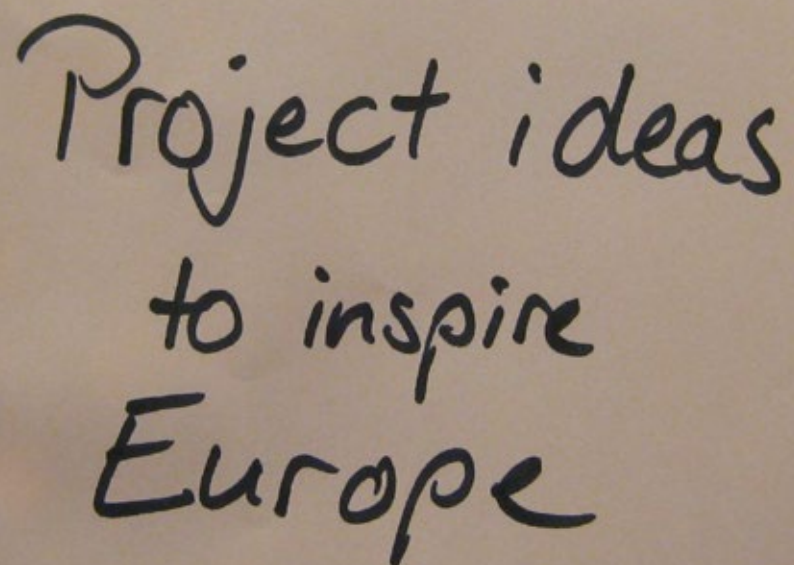 Project ideas
to inspire
Europe